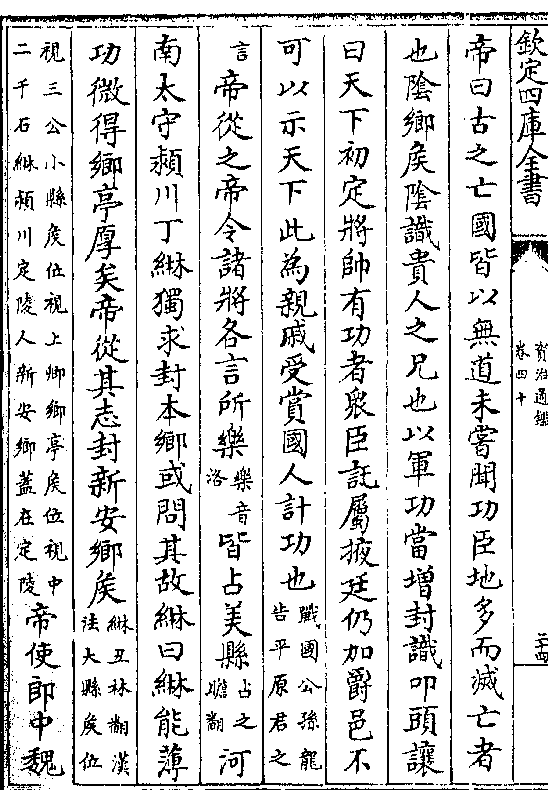 欽定四庫全書
資治通鑑
卷四十
二十四
帝曰古之亡國皆以無道未嘗聞功臣地多而滅亡者
也陰鄉矦陰識貴人之兄也以軍功當增封識叩頭讓
曰天下初定將帥有功者衆臣託屬掖廷仍加爵邑不
可以示天下此為親戚受賞國人計功也
戰國公孫龍
告平原君之
言
帝從之帝令諸將各言所樂
樂音
洛
皆占美縣
占之
贍翻
河
南太守潁川丁綝獨求封本鄉或問其故綝曰綝能薄
功微得鄉亭厚矣帝從其志封新安鄉矦
綝丑林翻漢
法大縣矦位
視三公小縣矦位視上卿鄉亭矦位視中
二千石綝潁川定陵人新安鄉蓋在定陵
帝使郎中魏